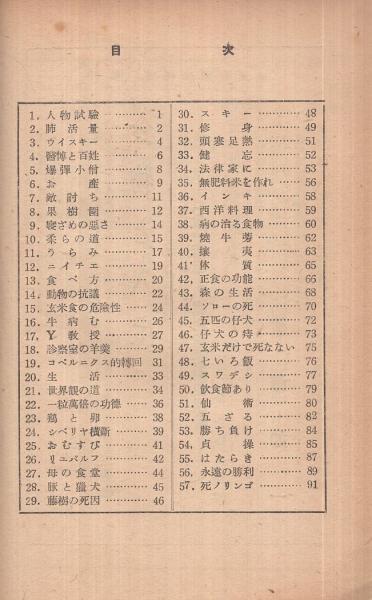 目次
1. 人物試驗 ………… 1
2. 肺活量 ………… 2
3. ウイスキー ………… 4
4. 醫博と百姓 ………… 6
5. 爆彈小僧 ………… 8
6. お產 ………… 9
7. 敵討ち ………… 11
8. 果樹園 ………… 12
9. 寢ざめの惡さ ………… 14
10. 柔らの道 ………… 15
11. うらみ ………… 17
12. ニイチエ ………… 19
13. 食べ方 ………… 20
14. 動物の抗議 ………… 22
15. 玄米食の危險性 ………… 24
16. 牛病む ………… 26
17. Y教授 ………… 27
18. 診察室の羊羹 ………… 29
19. コペルニクス的轉回 31
20. 生活 ………… 33
21. 世界觀の道 ………… 34
22. 一粒萬倍の功德 ………… 36
23. 鷄と卵 ………… 38
24. シベリヤ橫斷 ………… 39
25. おむすび ………… 41
26. リユバルフ ………… 42
27. 母の食堂 ………… 44
28. 豚と獵犬 ………… 45
29. 藤樹の死因 ………… 46
30. スキー ………… 48
31. 修身 ………… 49
32. 頭寒足熱 ………… 51
33. 健忘 ………… 52
34. 法律家に ………… 53
35. 無肥料米を作れ ………… 56
36. インキ ………… 58
37. 西洋料理 ………… 59
38. 病の治る食物 ………… 60
39. 燒牛蒡 ………… 62
40. 攘夷 ………… 63
41. 体質 ………… 65
42. 正食の功能 ………… 66
43. 森の生活 ………… 68
44. ソローの死 ………… 70
45. 五匹の仔犬 ………… 72
46. 仔犬の痔 ………… 73
47. 玄米だけで死なない 75
48. 七いろ飯 ………… 76
49. スワデシ ………… 77
50. 飮食節あり ………… 79
51. 仙術 ………… 80
52. 五ざる ………… 82
53. 勝ち負け ………… 84
54. 貞操 ………… 85
55. はたらき ………… 87
56. 永遠の勝利 ………… 89
57. 死ノリンゴ ………… 91